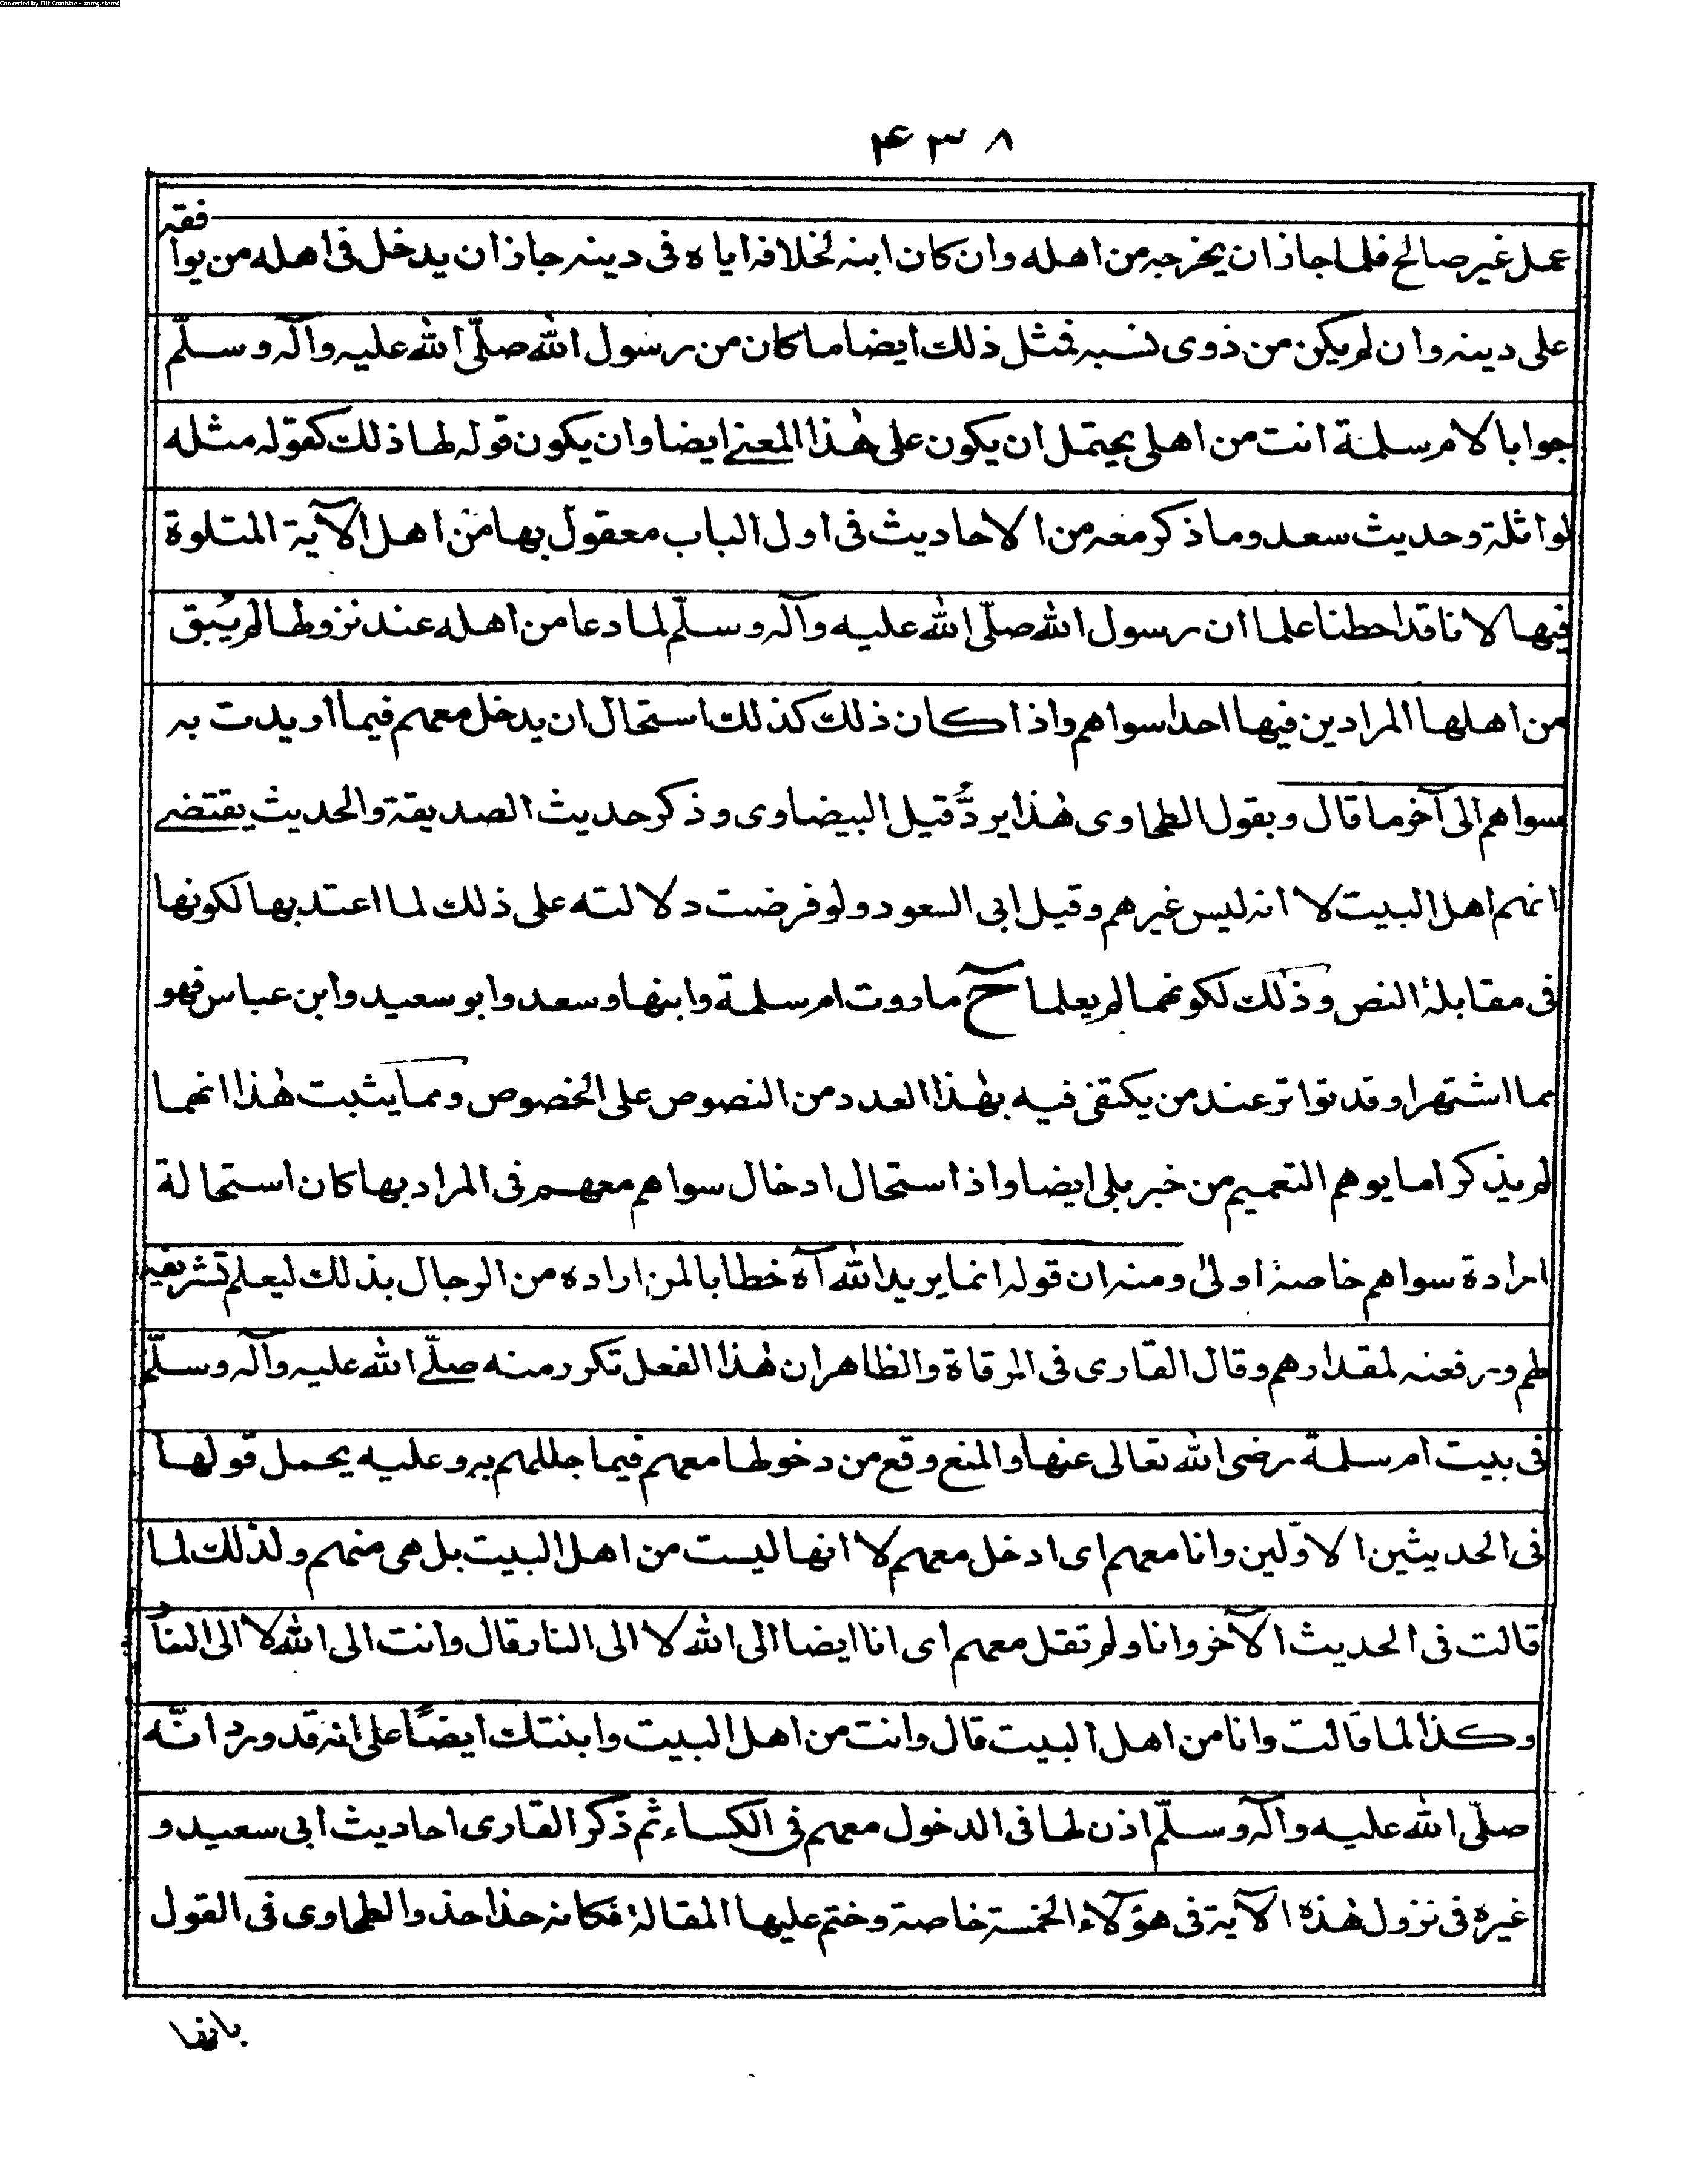 Converted by Tiff Combine - unregistered
۴۳۸
عمل غير صالح فلما جاز ان يخرجه من اهله وان كان ابنه لخلافه اياه فى دينه جاز ان يدخل فى اهله من يوافقه
على دينه وان لم يكن من ذوى نسبه فمثل ذلك ايضا ما كان من رسول الله صلّى الله عليه وآله وسلّم
جوابا لام سلمة انت من اهلى يحتمل ان يكون على هٰذا المعنے ايضا وان يكون قوله لها ذلك كقوله مثله
لواثلة وحديث سعد وما ذكر معه من الاحاديث فى اول الباب معقول بها من اهل الآية المتلوة
فيها لانا قد احطنا علما ان رسول الله صلّى الله عليه وآله وسلّم لما دعا من اهله عند نزولها لم يُبق
من اهلها المرادين فيها احدا سواهم واذا كان ذلك كذلك استحال ان يدخل معهم فيما اريدت به
سواهم الى آخر ما قال وبقول الطحاوى هٰذا يردُّ قيل البيضاوى وذكر حديث الصديقة والحديث يقتضے
انهم اهل البيت لا انه ليس غيرهم وقيل ابى السعود ولو فرضت دلالته على ذلك لما اعتد بها لكونها
فى مقابلة النص وذٰلك لكونهما لم يعلما ح ما روت ام سلمة وابنها وسعد وابو سعيد وابن عباس فهو
مما اشتهر او قد تواتر عند من يكتفى فيه بهٰذا العدد من النصوص على الخصوص ومما يثبت هٰذا انهما
لم يذكرا ما يوهم التعميم من خبر بلى ايضا واذا استحال ادخال سواهم معهم فى المراد بها كان استحالة
ارادة سواهم خاصة اولىٰ ومنه ان قوله انما يريد الله آه خطابا لمن اراده من الرجال بذلك ليعلم تشريفه
لهم ورفعنه لمقدارهم وقال القارى فى المرقاة والظاهر ان هٰذا الفعل تكرر منه صلّے الله عليه وآله وسلّم
فى بيت ام سلمة رضى الله تعالى عنها والمنع وقع من دخولها معهم فيما جللهم به وعليه يحمل قولها
فى الحديثين الاوّلين وانا معهم اى ادخل معهم لا انها ليست من اهل البيت بل هى منهم ولذٰلك لما
قالت فى الحديث الآخر وانا ولم تقل معهم اى انا ايضا الى الله لا الى النار قال وانت الى الله لا الى النار
وكذا لما قالت وانا من اهل البيت قال وانت من اهل البيت وابنتك ايضًا على انه قد ورد انّه
صلّى الله عليه وآله وسلّم اذن لها فى الدخول معهم فى الكساء ثم ذكر القارى احاديث ابى سعيد و
غيره فى نزول هٰذه الآية فى هؤلاء الخمسة خاصة وختم عليها المقالة فكانه حذا حذو الطحاوى فى القول